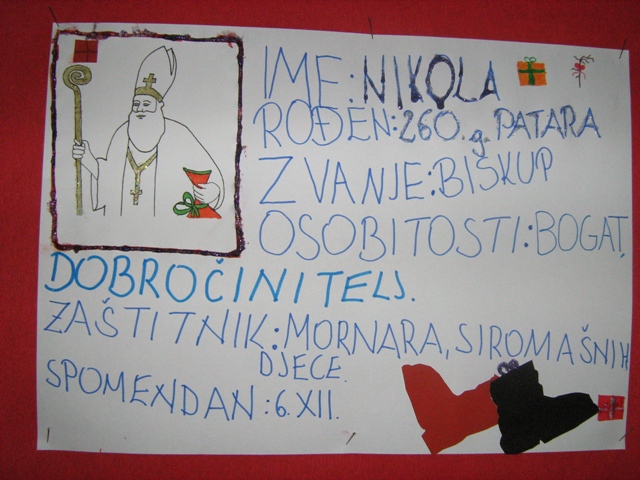 IME: NIKOLA
ROĐEN: 260. g. PATARA
ZVANJE: BISKUP
OSOBITOSTI: BOGAT,
DOBROČINITELJ.
ZAŠTITNIK: MORNARA, SIROMAŠNIH
DJECE.
SPOMENDAN: 6. XII.